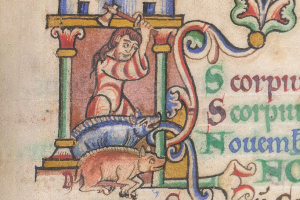 Scorpiu
Scorpiu
Novemb
NO